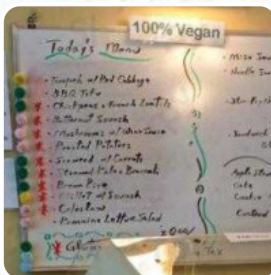 100% Vegan
Today's Menu
• Tempeh w/ Red Cabbage
• BBQ Tofu
• Chickpeas & French Lentils
• Butternut Squash
• Mushrooms w/
• Roasted Potatoes
• Seaweed w/ Carrots
• Steamed Kale & Broccoli
• Brown Rice
• Millet w/ Squash
• Coleslaw
• Romaine Lettuce Salad
• Miso Sou
• Noodle Sou
• Stir Fry
• Sandwich
Apple
Cake
Cookie
Custard
+ Tax